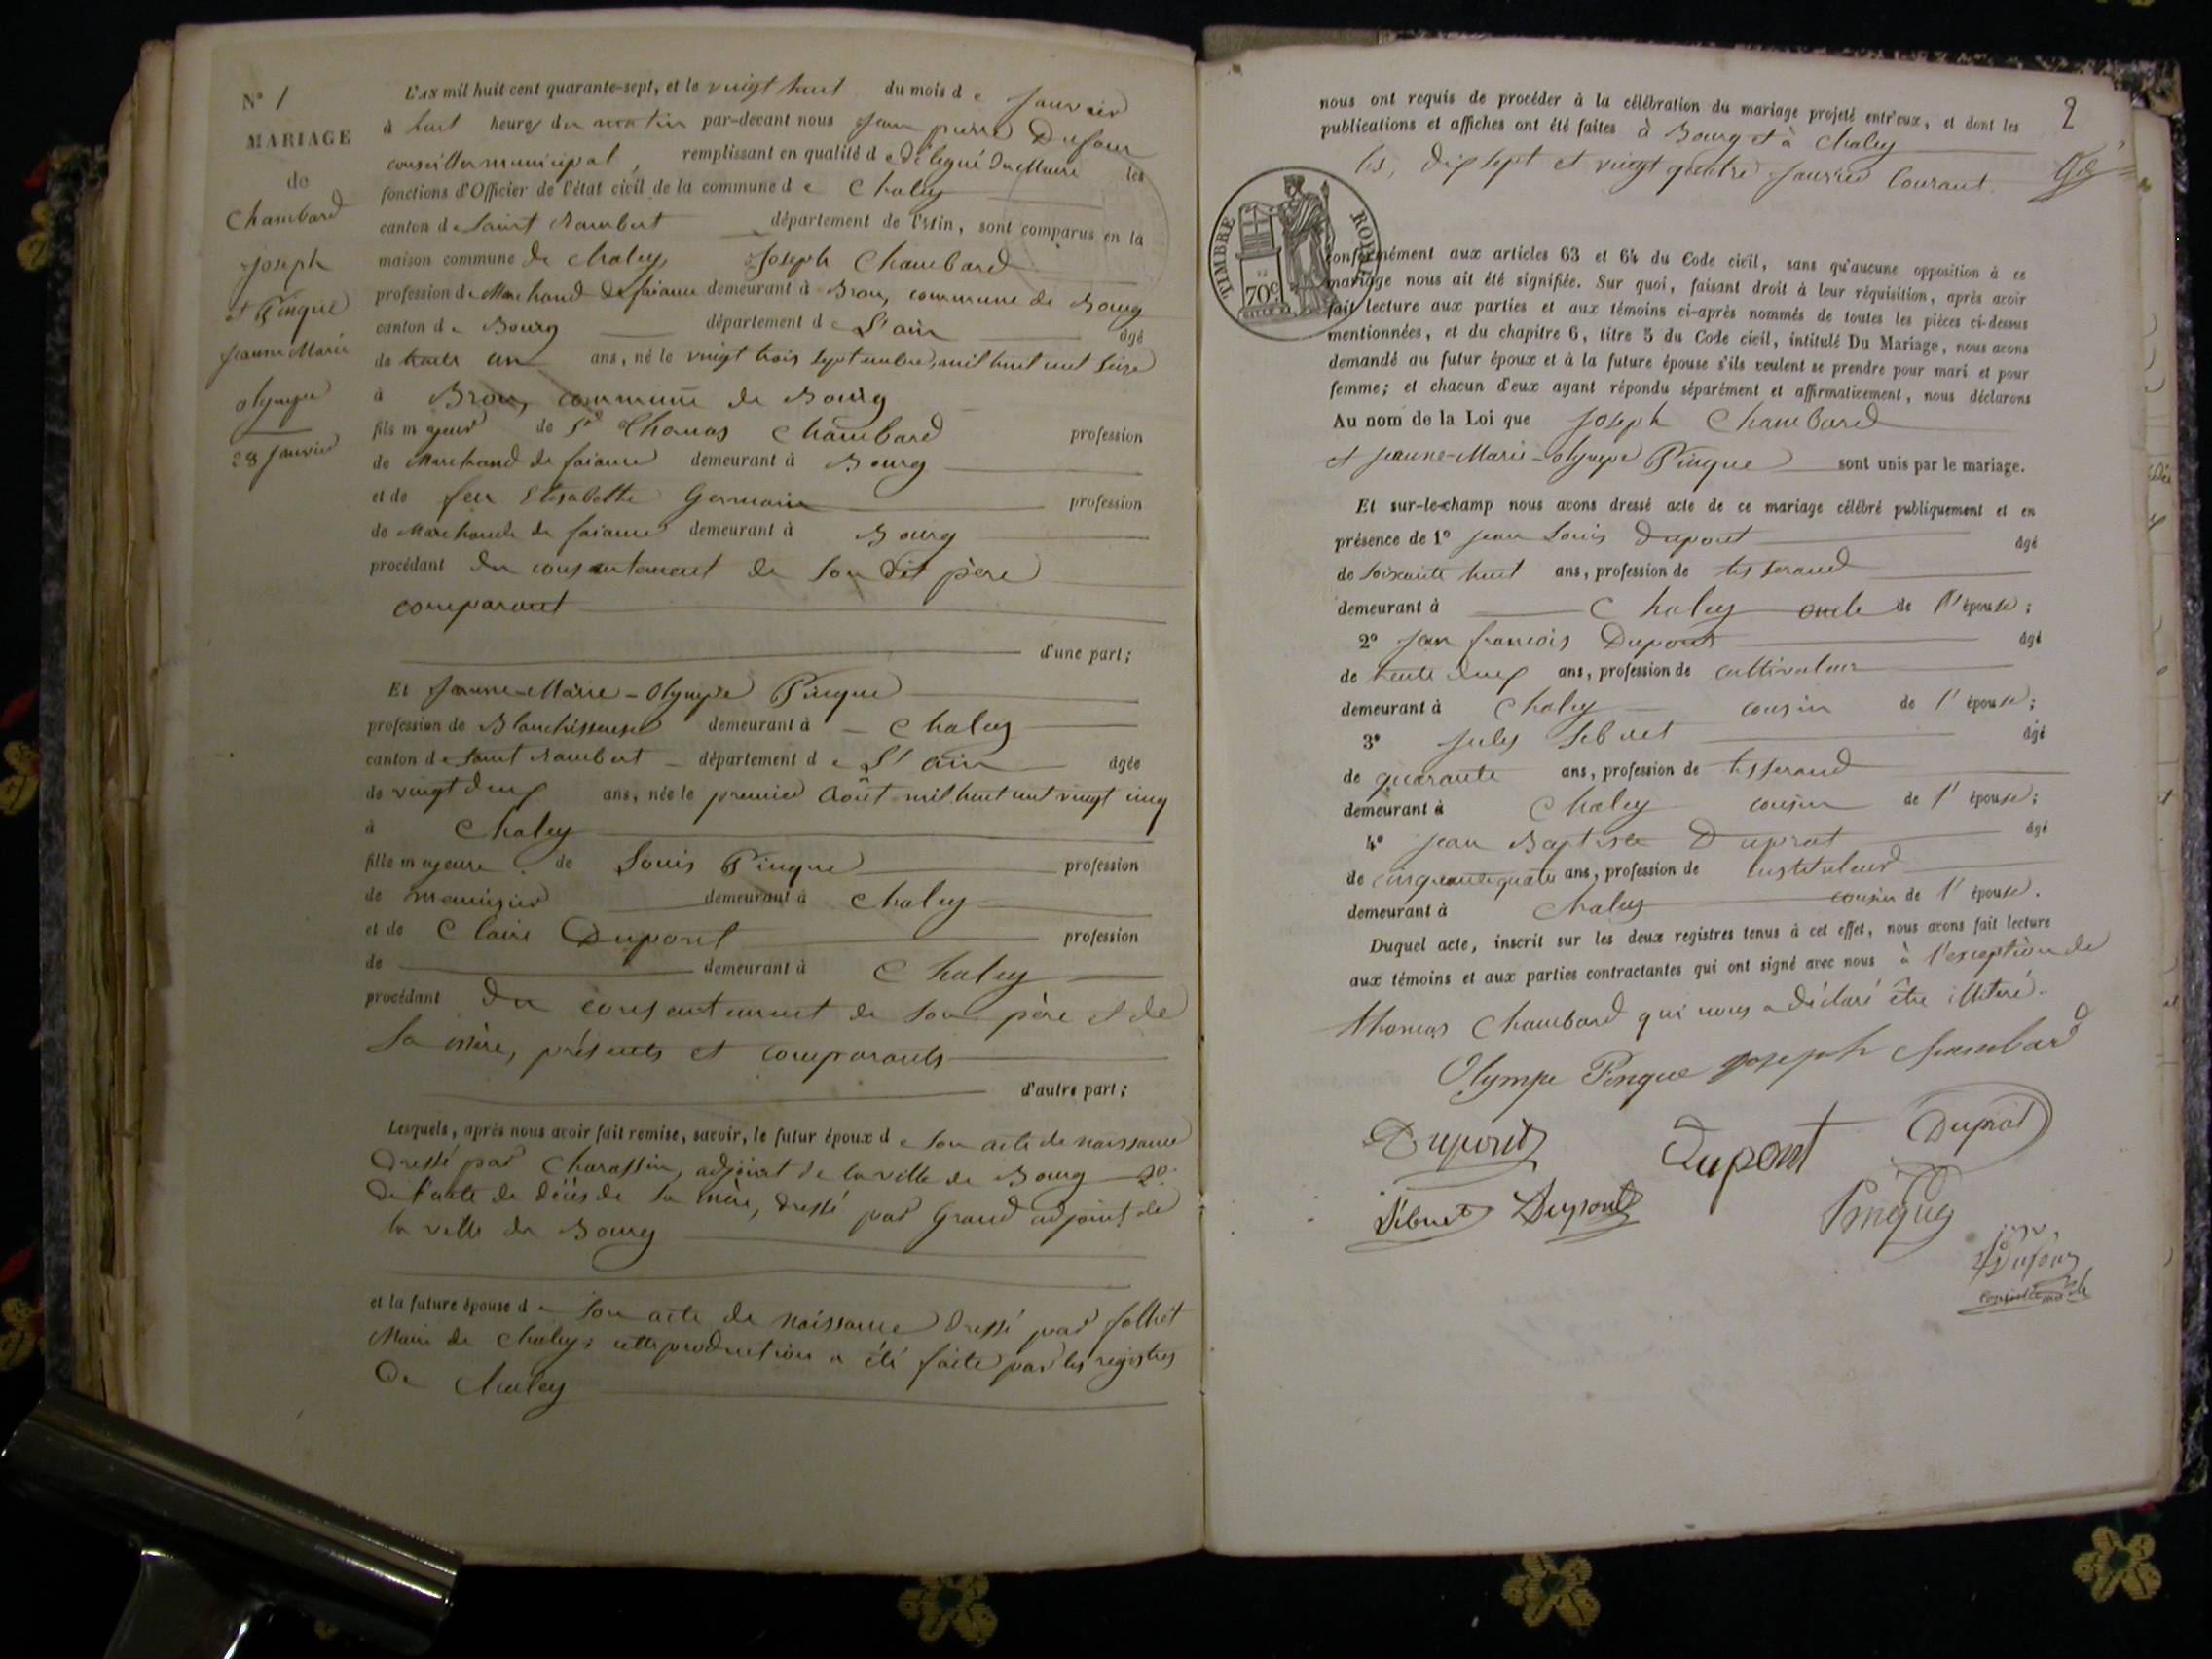 N° 1
MARIAGE
de
Chambard
Joseph
et Pingue
Jeanne Marie
olympe
28 Janvier
L'AN mil huit cent quarante-sept, et le vingt huit du mois de Janvier
à huit heures du matin par-devant nous Jean pierre Dufour
conseiller municipal, remplissant en qualité de Délégué du Maire les
fonctions d'Officier de l'état civil de la commune de Chaley
canton de Saint Rambert département de l'Ain, sont comparus en la
maison commune de Chaley, Joseph Chambard
profession de Marchand de faiance demeurant à Brou, commune de Bourg
canton de Bourg département de L'ain âgé
de trente un ans, né le vingt trois Septembre, mil huit cent Seize
à Brou, commune de Bourg
fils majeur de Sr Thomas Chambard profession
de Marchand de faiance demeurant à Bourg
et de feu Elisabette Germain profession
de Marchande de faiance demeurant à Bourg
procédant du consentement de Son dit père
comparant
d'une part;
Et Jeanne-Marie-Olympe Pingue
profession de Blanchisseuse demeurant à Chaley
canton de Saint Rambert département de L'ain âgée
de vingt deux ans, née le premier Août mil huit cent vingt cinq
à Chaley
fille majeure de Louis Pingue profession
de menuisier demeurant à Chaley
et de Claire Dupont profession
de demeurant à Chaley
procédant du consentement de son père et de
sa mère, présents et comparants
d'autre part;
Lesquels, après nous avoir fait remise, savoir, le futur époux de Son acte de naissance
Dressé par Charassin, adjoint de la ville de Bourg 2°.
De l'acte de décès de sa mère, dressé par Grand adjoint de
la ville de Bourg
et la future épouse de Son acte de naissance Dressé par follict
Maire de Chaley; cette production a été faite par les registres
De Chaley
2
nous ont requis de procéder à la célébration du mariage projeté entr'eux, et dont les
publications et affiches ont été faites à Bourg et à Chaley
les, dix sept et vingt quatre Janvier Courant
TIMBRE ROYAL
70c
conformément aux articles 63 et 64 du Code civil, sans qu'aucune opposition à ce
mariage nous ait été signifiée. Sur quoi, faisant droit à leur réquisition, après avoir
fait lecture aux parties et aux témoins ci-après nommés de toutes les pièces ci-dessus
mentionnées, et du chapitre 6, titre 5 du Code civil, intitulé Du Mariage, nous avons
demandé au futur époux et à la future épouse s'ils veulent se prendre pour mari et pour
femme; et chacun d'eux ayant répondu séparément et affirmativement, nous déclarons
Au nom de la Loi que Joseph Chambard
et Jeanne-Marie-Olympe Pingue sont unis par le mariage.
Et sur-le-champ nous avons dressé acte de ce mariage célébré publiquement et en
présence de 1° Jean Louis Dupont âgé
de Soixante huit ans, profession de tisserand
demeurant à Chaley oncle de l'épouse;
2° Jean francois Dupont âgé
de trente deux ans, profession de cultivateur
demeurant à Chaley cousin de l'épouse;
3° Jules Sibuet âgé
de quarante ans, profession de tisserand
demeurant à Chaley cousin de l'épouse;
4° Jean Baptiste Duprat âgé
de cinquante quatre ans, profession de instituteur
demeurant à Chaley cousin de l'épouse.
Duquel acte, inscrit sur les deux registres tenus à cet effet, nous avons fait lecture
aux témoins et aux parties contractantes qui ont signé avec nous à l'exception de
Thomas Chambard qui nous a déclaré être illitéré.
Olympe Pingue joseph chambard
Dupont Dupont Duprat
Sibuet Dupont Pingue
Dufour